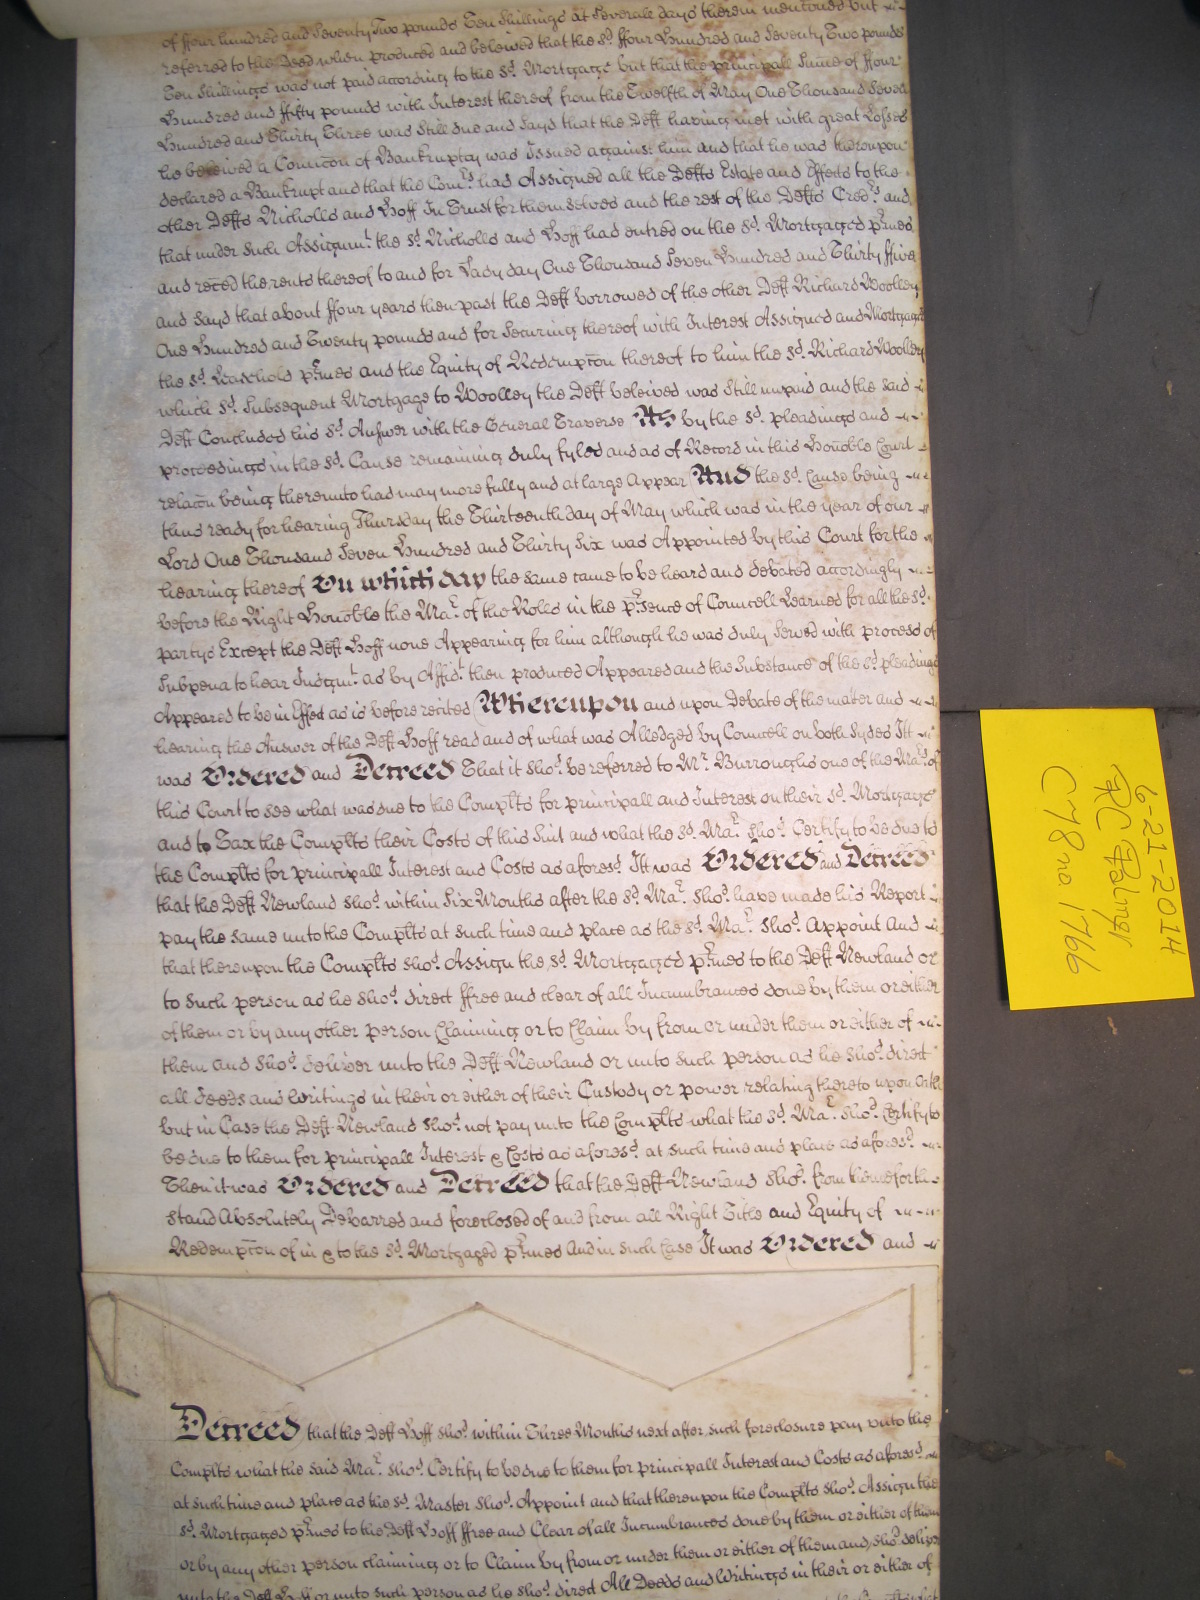 of ffour hundred and Seventy Two pounds Ten Shillings at Severall days therein mentioned but
referred to the Deed when produced and beleived that the sd. ffour Hundred and Seventy Two pounds
Ten Shillings was not paid according to the sd. Mortgage but that the principall Summe of ffour
Hundred and ffifty pounds with Interest thereof from the Twelfth of May One Thousand Seven
Hundred and Thirty Three was still due and Sayd that the Deft having met with great Losses
he beleived a Comicon of Bankruptcy was Issued against him and that he was thereupon
declared a Bankrupt and that the Comrs. had Assigned all the Defts Estate and Effects to the
other Defts Nicholls and Hoff In Trust for themselves and the rest of the Defts Credrs. and
that under such Assignmt. the sd. Nicholls and Hoff had entred on the sd. Mortgaged prmes
and reced the rents thereof to and for Lady day One Thousand Seven Hundred and Thirty ffive
and Sayd that about ffour years then past the Deft borrowed of the other Deft Richard Woolley
One Hundred and Twenty pounds and for Securing thereof with Interest Assigned and Mortgaged
the sd. Leasehold prmes and the Equity of Redempcon thereof to him the sd. Richard Woolley
which sd. Subsequent Mortgage to Woolley the Deft beleived was Still unpaid and the said
Deft Concluded his sd. Answer with the General Traverse As by the sd. pleadings and
proceedings in the sd. Cause remaining duly fyled and as of Record in this Honoble Court
relacon being thereunto had may more fully and at large Appear And the sd. Cause being
thus ready for hearing Thursday the Thirteenth day of May which was in the year of our
Lord One Thousand Seven Hundred and Thirty Six was Appointed by this Court for the
hearing thereof On which day the same came to be heard and debated accordingly
before the Right Honoble the Mar. of the Rolls in the prsence of Councell Learned for all the sd.
partys Except the Deft Hoff none Appearing for him although he was duly Served with process of
Subpena to hear Judgmt. as by Affidt. then produced Appeared and the Substance of the sd. pleadings
Appeared to be in Effect as is before recited Whereupon and upon Debate of the matter and
hearing the Answer of the Deft Hoff read and of what was Alledged by Councell on both Sydes Itt
was Ordered and Decreed That it shod. be referred to Mr. Burroughs one of the Mars. of
this Court to see what was due to the Complts for principall and Interest on their sd. Mortgage
and to Tax the Complts their Costs of this Suit and what the sd. Mar. shod. Certify to be due to
the Complts for principall Interest and Costs as aforesd. It was Ordered and Decreed
that the Deft Newland shod. within Six Months after the sd. Mar. shod. have made his Report
pay the same unto the Complts at such time and place as the sd. Mar. shod. appoint And
that thereupon the Complts shod. Assign the sd. Mortgaged prmes to the Deft Newland or
to such person as he shod. direct ffree and clear of all Incumbrances done by them or either
of them or by any other person Claiming or to Claim by from or under them or either of
them and shod. deliver unto the Deft Newland or unto such person as he shod. direct
all deeds and Writings in their or either of their Custody or power relating thereto upon Oath
but in Case the Deft Newland shod. not pay unto the Complts what the sd. Mar. shod. Certify to
be due to them for principall Interest & Costs as aforesd. at such time and place as aforesd.
Then it was Ordered and Decreed that the Deft Newland shod. from thenceforth
stand Absolutely Debarred and foreclosed of and from all Right Title and Equity of
Redempcon of in & to the sd. Mortgaged prmes And in such Case It was Ordered and
Decreed that the Deft Hoff shod. within Three Months next after such foreclosure pay unto the
Complts what the said Mar. shod. Certify to be due to them for principall Interest and Costs as aforesd.
at such time and place as the sd. Master shod. Appoint and that thereupon the Complts shod. Assign the
sd. Mortgaged prmes to the Deft Hoff ffree and Clear of all Incumbrances done by them or either of them
or by any other person claiming or to Claim by from or under them or either of them and shod. deliver
unto the Deft Hoff or unto such person as he shod. direct All Deeds and Writings in their or either of
6-21-2014
RC Palmer
C78 no. 1766